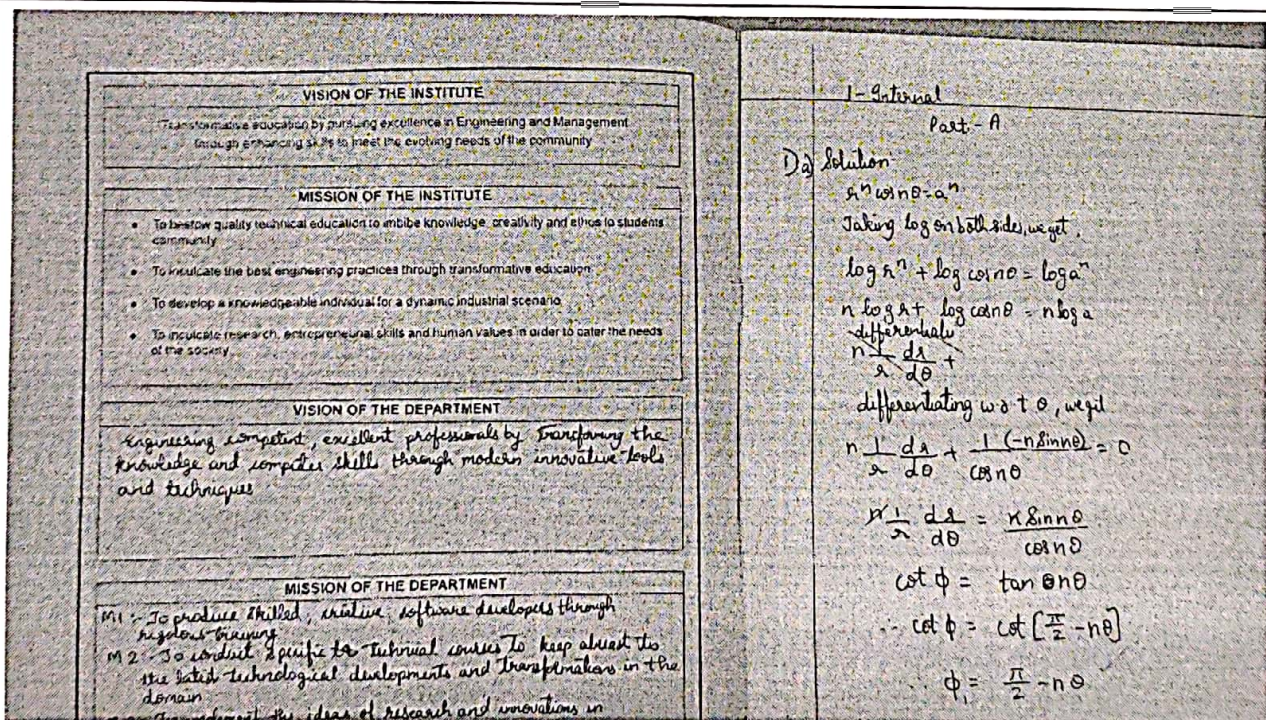 VISION OF THE INSTITUTE
Transformative education by pursuing excellence in Engineering and Management
through enhancing skills to meet the evolving needs of the community
MISSION OF THE INSTITUTE
• To bestow quality technical education to imbibe knowledge, creativity and ethos to students
community
• To inculcate the best engineering practices through transformative education
• To develop a knowledgeable individual for a dynamic industrial scenario
• To inculcate research, entrepreneurial skills and human values in order to cater the needs
of the society
VISION OF THE DEPARTMENT
Engineering competent, excellent professionals by transforming the
knowledge and computer skills through modern innovative tools
and techniques
MISSION OF THE DEPARTMENT
M1 :- To produce skilled, creative, software developers through
rigorous training
M2 - To conduct specific technical courses to keep abreast to
the latest technological developments and transformations in the
domain
the ideas of research and innovations in
1 - Internal
Part - A
1) a) Solution
r^n cos nθ = a^n
Taking log on both sides, we get,
log r^n + log cos nθ = log a^n
n log r + log cos nθ = n log a
differentiate
n 1/r dr/dθ +
differentiating w r t θ, we get
n 1/r dr/dθ + 1/cos nθ (-n sin nθ) = 0
n 1/r dr/dθ = n sin nθ / cos nθ
cot ϕ = tan nθ
∴ cot ϕ = cot [π/2 - nθ]
∴ ϕ₁ = π/2 - nθ